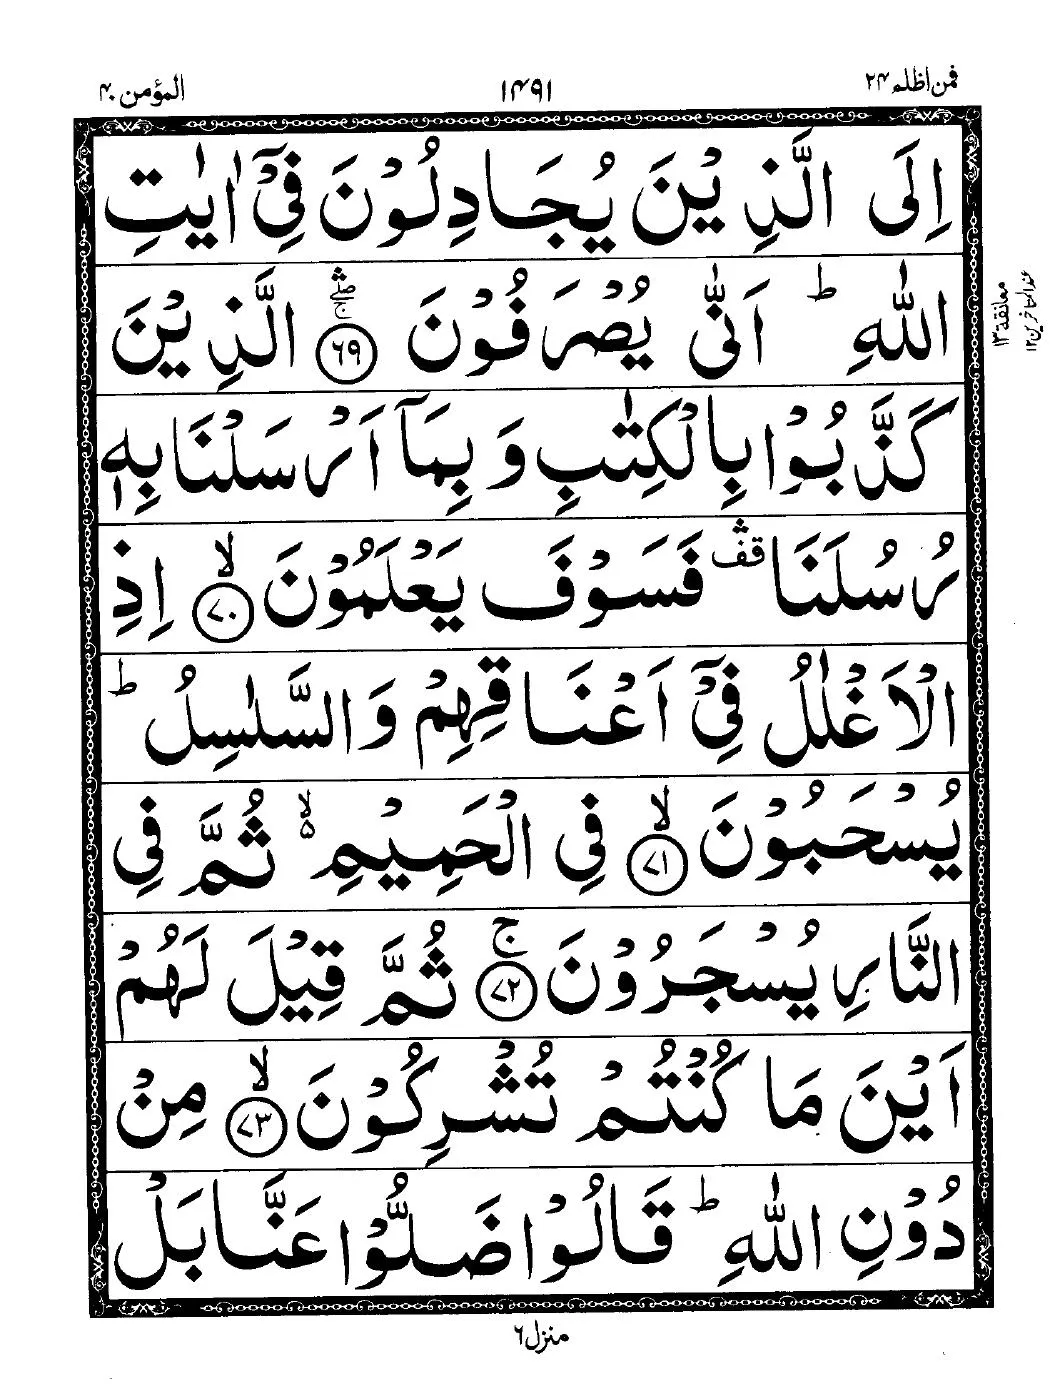 فمن اظلم ۲۴
۱۴۹۱
المؤمن ۴۰
اِلَى الَّذِيْنَ يُجَادِلُوْنَ فِيْٓ اٰيٰتِ
اللّٰهِ ؕ اَنّٰى يُصْرَفُوْنَ ۛۚ ﴿۶۹﴾ الَّذِيْنَ
كَذَّبُوْا بِالْكِتٰبِ وَ بِمَآ اَرْسَلْنَا بِهٖ
رُسُلَنَا ۛ قف فَسَوْفَ يَعْلَمُوْنَ ۙ ﴿۷۰﴾ اِذِ
الْاَغْلٰلُ فِيْٓ اَعْنَاقِهِمْ وَالسَّلٰسِلُ ؕ
يُسْحَبُوْنَ ۙ ﴿۷۱﴾ فِي الْحَمِيْمِ ۙ۵ ثُمَّ فِي
النَّارِ يُسْجَرُوْنَ ۚ ﴿۷۲﴾ ثُمَّ قِيْلَ لَهُمْ
اَيْنَ مَا كُنْتُمْ تُشْرِكُوْنَ ۙ ﴿۷۳﴾ مِنْ
دُوْنِ اللّٰهِ ؕ قَالُوْا ضَلُّوْا عَنَّا بَلْ
معانقة ۱۳
عند المتأخرين ۱۲
منزل ۶